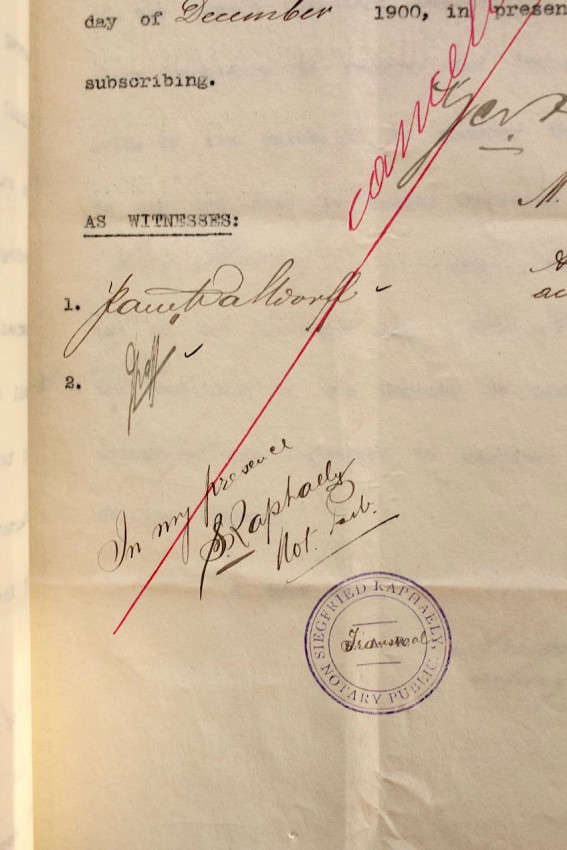 day of December 1900, in presen
subscribing.
cancell
AS WITNESSES:
1.
2.
In my presence
S. Raphaely
Not. Pub.
SIEGFRIED RAPHAELY,
Transvaal
NOTARY PUBLIC.